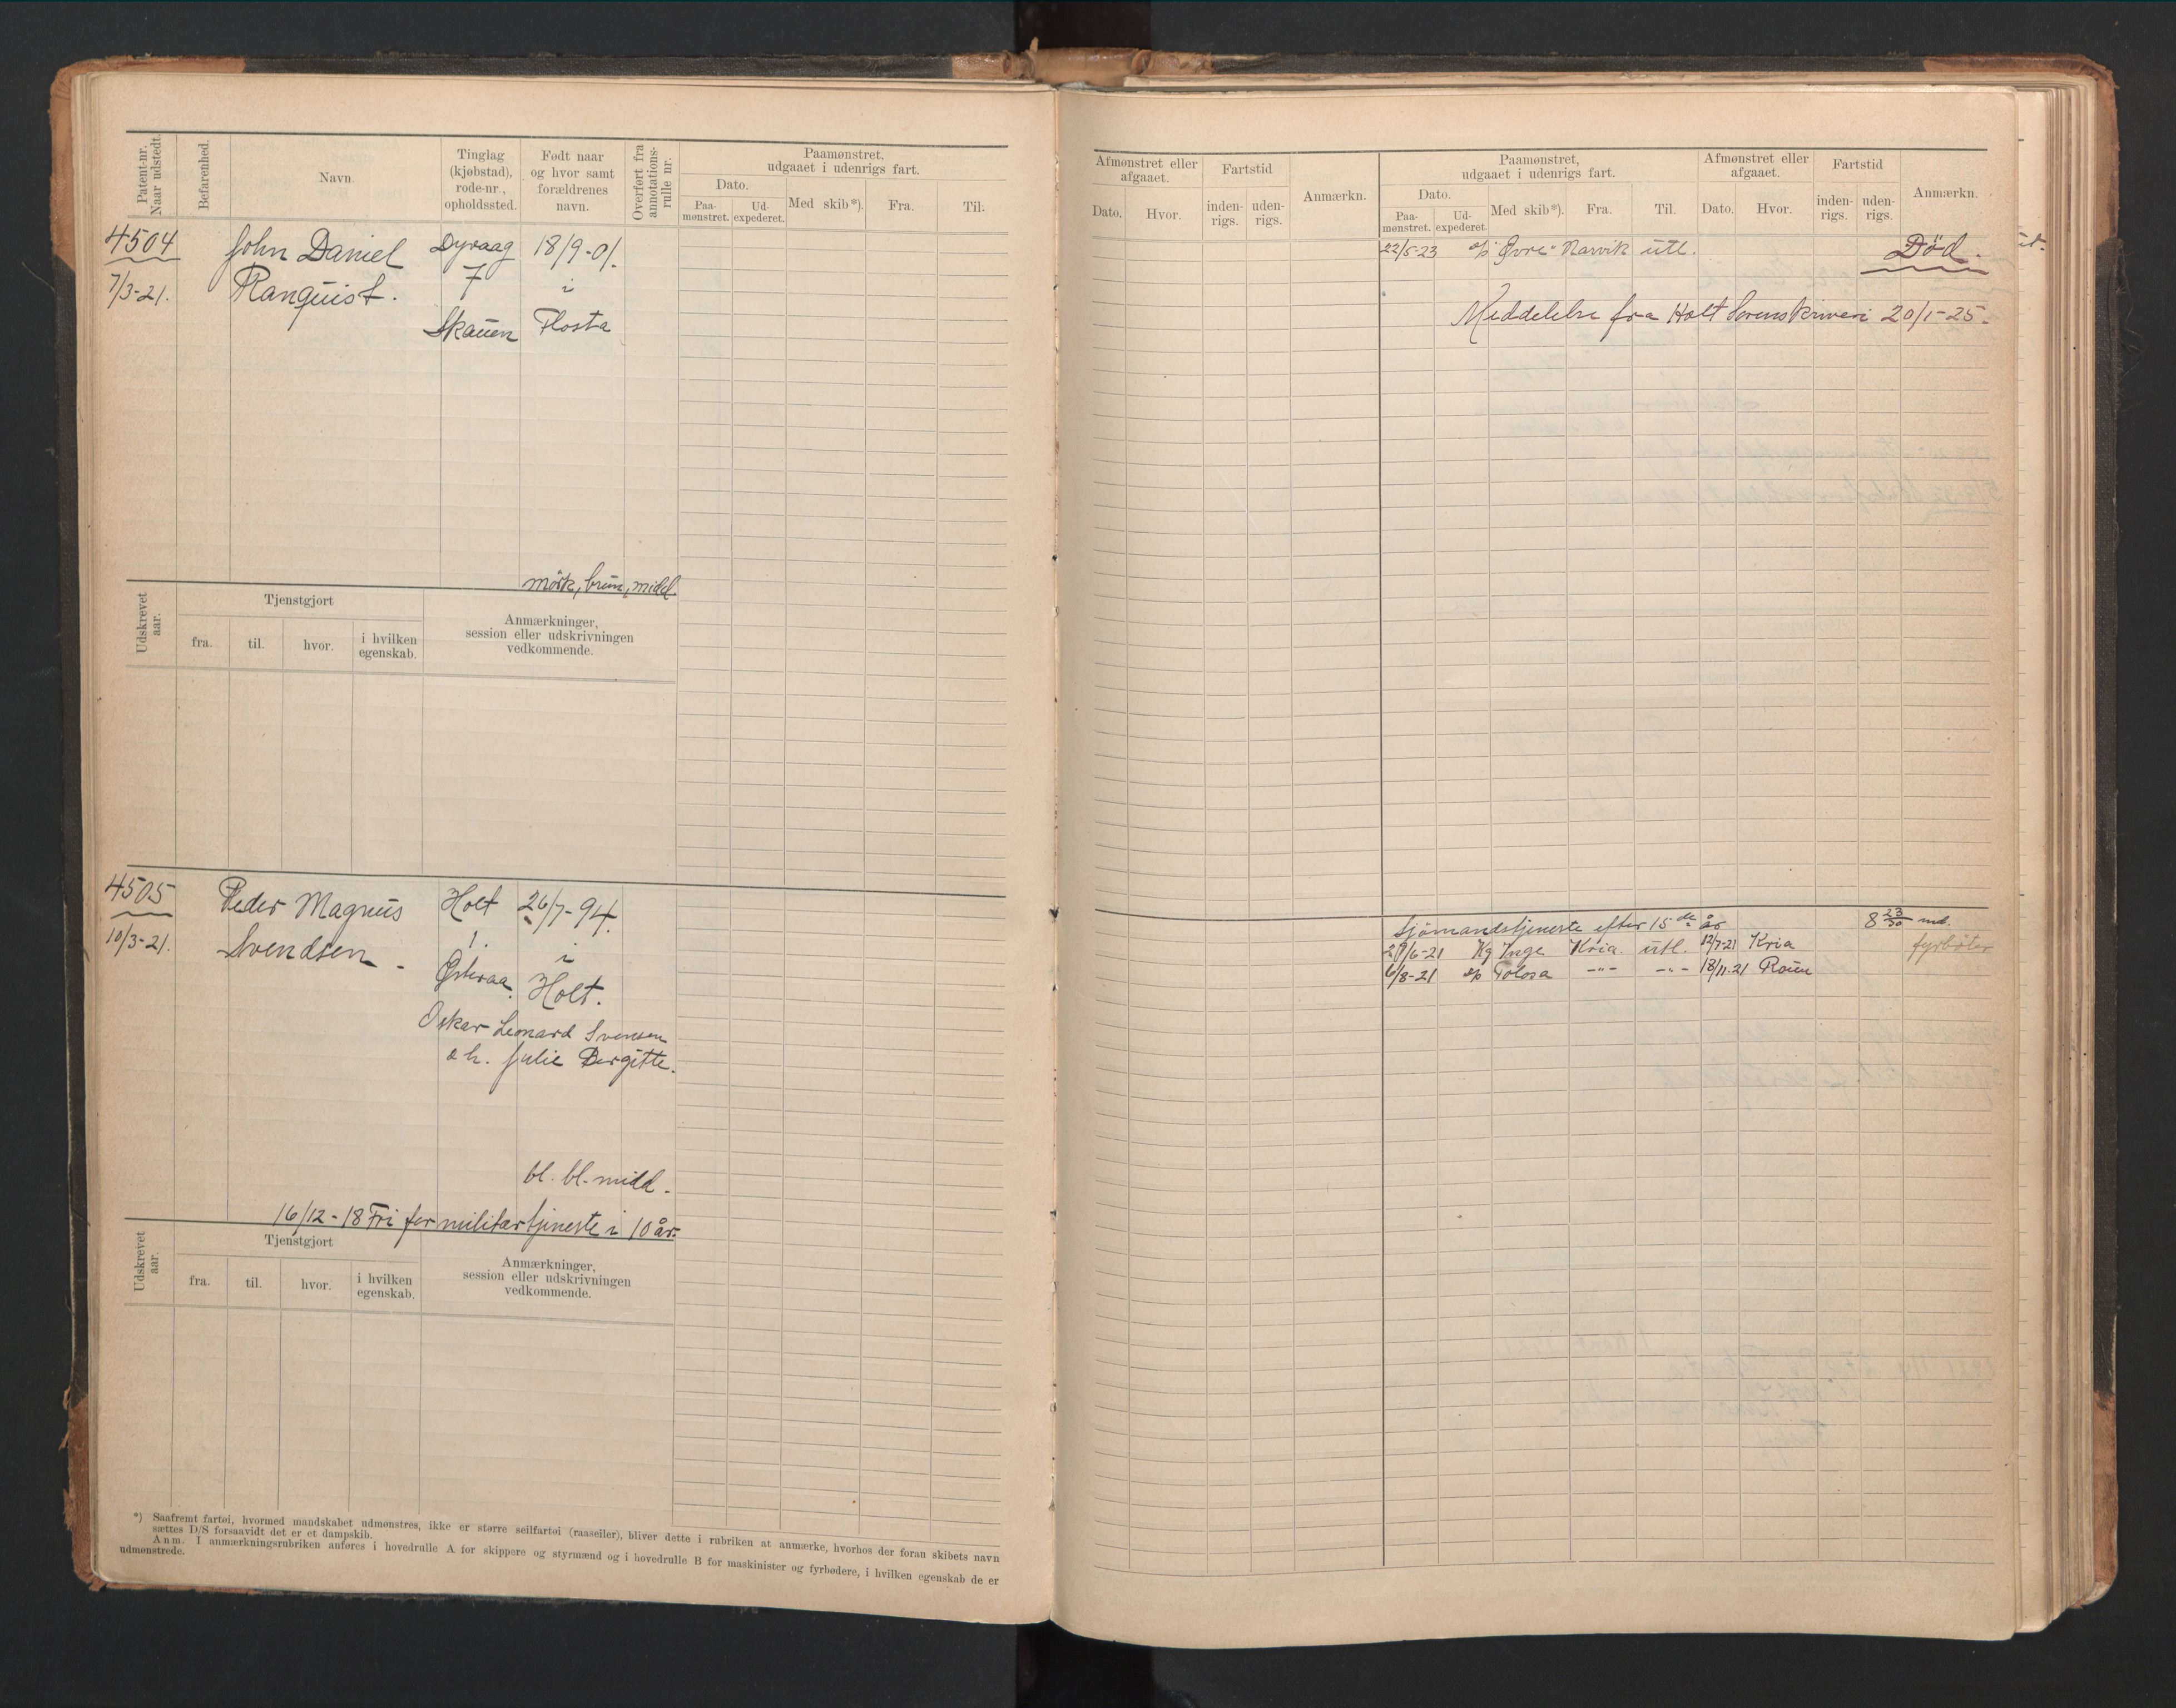 Patent-nr. Naar udstedt.
Befarenhed.
Navn.
Tinglag (kjøbstad), rode-nr., opholdssted.
Født naar og hvor samt forældrenes navn.
Overført fra annotations-rulle nr.
Paamønstret, udgaaet i udenrigs fart.
Dato.
Paa-mønstret.
Ud-expederet.
Med skib*).
Fra.
Til.
4504
7/3-21.
John Daniel
Ranquist.
Dyvaag
7
Skauen
18/9-01.
i
Flosta
mörk, brun, midd.
Udskrevet aar.
Tjenstgjort
fra.
til.
hvor.
i hvilken egenskab.
Anmærkninger, session eller udskrivningen vedkommende.
4505
10/3-21.
Peder Magnus
Svendsen -
Holt
1.
Østeraa.
26/7-94.
i
Holt.
Oskar Leonard Svensen
o h. Julie Bergitte.
bl. bl. midd.
16/12-18 Fri for militærtjeneste i 10 år.
Udskrevet aar.
Tjenstgjort
fra.
til.
hvor.
i hvilken egenskab.
Anmærkninger, session eller udskrivningen vedkommende.
*) Saafremt fartøi, hvormed mandskabet udmønstres, ikke er større seilfartøi (raaseiler), bliver dette i rubriken at anmærke, hvorhos der foran skibets navn
sættes D/S forsaavidt det er et dampskib.
Anm. I anmærkningsrubriken anføres i hovedrulle A for skippere og styrmænd og i hovedrulle B for maskinister og fyrbødere, i hvilken egenskab de er
udmønstrede.
Afmønstret eller afgaaet.
Dato.
Hvor.
Fartstid
inden-rigs.
uden-rigs.
Anmærkn.
Paamønstret, udgaaet i udenrigs fart.
Dato.
Paa-mønstret.
Ud-expederet.
Med skib*).
Fra.
Til.
Afmønstret eller afgaaet.
Dato.
Hvor.
Fartstid
inden-rigs.
uden-rigs.
Anmærkn.
22/5-23 s/s "Øvre" Narvik utl.
Död.
Meddelelse fra Holt Sorenskriveri 20/1-25.
Sjömandstjeneste efter 15de år 8 23/30 md.
Kg Inge Kria. utl. 12/7-21 Kria fyrböter
6/8-21 s/s Tolosa -"- -"- 18/11-21 Rouen